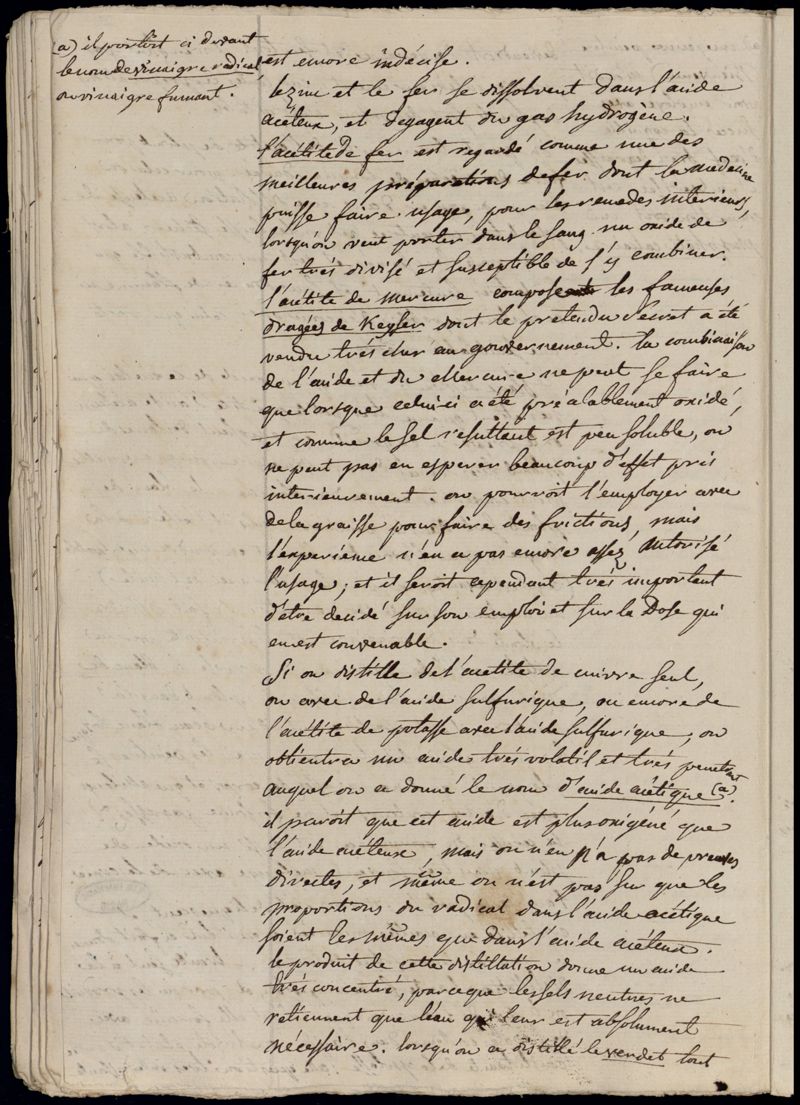 (a) il portoit ci devant
le nom de vinaigre radical
ou vinaigre fumant.
est encore indécise.
le zinc et le fer se dissolvent dans l'acide
acéteux, et degagent du gas hydrogène.
l'acétite de fer est regardé comme une des
meilleures préparations de fer dont la medecine
puisse faire usage, pour les remedes interieurs,
lorsqu'on veut porter dans le sang un oxide de
fer très divisé et susceptible de s'y combiner.
l'acétite de mercure compose les fameuses
dragées de Keyser dont le pretendu secret a été
vendu très cher au gouvernement. la combinaison
de l'acide et du mercure ne peut se faire
que lorsque celui-ci a été préalablement oxidé,
et comme le sel resultant est peu soluble, on
ne peut pas en esperer beaucoup d'effet pris
interieurement. on pourroit l'employer avec
de la graisse pour faire des frictions, mais
l'experience n'en a pas encore assez autorisé
l'usage; et il seroit cependant très important
d'être decidé sur son emploi et sur la Dose qui
en est convenable.
Si on distille de l'acetite de cuivre seul,
ou avec de l'acide sulfurique, ou encore de
l'acétite de potasse avec l'acide sulfurique, on
obtiendra un acide très volatil et très penetrant
auquel on a donné le nom d'acide acétique (a).
il paroit que cet acide est plus oxigéné que
l'acide acéteux, mais on n'en n'a pas de preuves
directes, et même on n'est pas sur que les
proportions du radical dans l'acide acétique
soient les mêmes que dans l'acide acéteux.
le produit de cette distillation donne un acide
très concentré, parceque les sels neutres ne
retiennent que l'eau qui leur est absolument
nécessaire. lorsqu'on a distillé le verdet tout